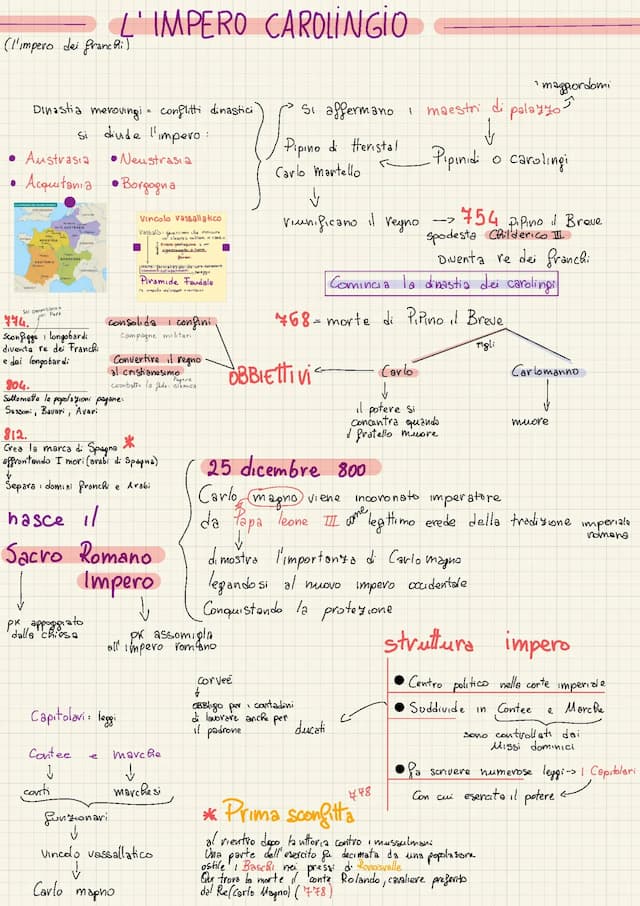 L'IMPERO CAROLINGIO
(l'impero dei franchi)
Dinastia merovingi = conflitti dinastici
si divide l'impero:
Austrasia
Neustrasia
Acquitania
Borgogna
Si affermano i maestri di palazzo
maggiordomi
Pipinidi o carolingi
Pipino di Heristal
Carlo Martello
riunificano il regno → 754 Pipino il Breve
spodesta Childerico III
Diventa re dei franchi
Comincia la dinastia dei carolingi
Vincolo vassallatico
Piramide Feudale
768 = morte di Pipino il Breve
figli
Carlo
Carlomanno
il potere si
concentra quando
il fratello muore
muore
OBBIETTIVI
consolida i confini
campagne militari
Convertire il regno
al cristianesimo
774.
sconfigge i longobardi
diventa re dei Franchi
e dei longobardi
804.
Sottomette le popolazioni pagane:
Sassoni, Bavari, Avari
812.
Crea la marca di Spagna *
affrontando I mori (arabi di Spagna)
Separa i domini franchi e Arabi
25 dicembre 800
Carlo magno viene incoronato imperatore
da Papa leone III come legittimo erede della tradizione imperiale
romana
dimostra l'importanza di Carlo magno
legandosi al nuovo impero occidentale
Conquistando la protezione
nasce il
Sacro Romano
Impero
pk appoggiato
dalla chiesa
pk assomiglia
all'impero romano
struttura impero
Centro politico nella corte imperiale
Suddivide in Contee e Marche
sono controllati dai
Missi dominici
fa scrivere numerose leggi → I Capitolari
Con cui esercita il potere
ducati
corveé
obbligo per i contadini
di lavorare anche per
il padrone
Capitolari: leggi
Contee e marche
conti
marchesi
funzionari
Vincolo vassallatico
Carlo magno
* Prima sconfitta 778
al rientro dopo la vittoria contro i mussulmani
Una parte dell'esercito fu decimata da una popolazione
ostile i Baschi nei pressi di Roncisvalle
Qui trova la morte il conte Rolando, cavaliere preferito
del Re (Carlo Magno) (778)